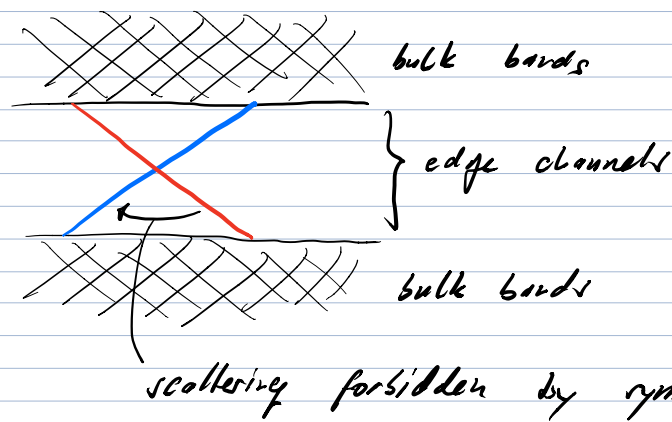 bulk bands
edge channels
bulk bands
scattering forbidden by sym